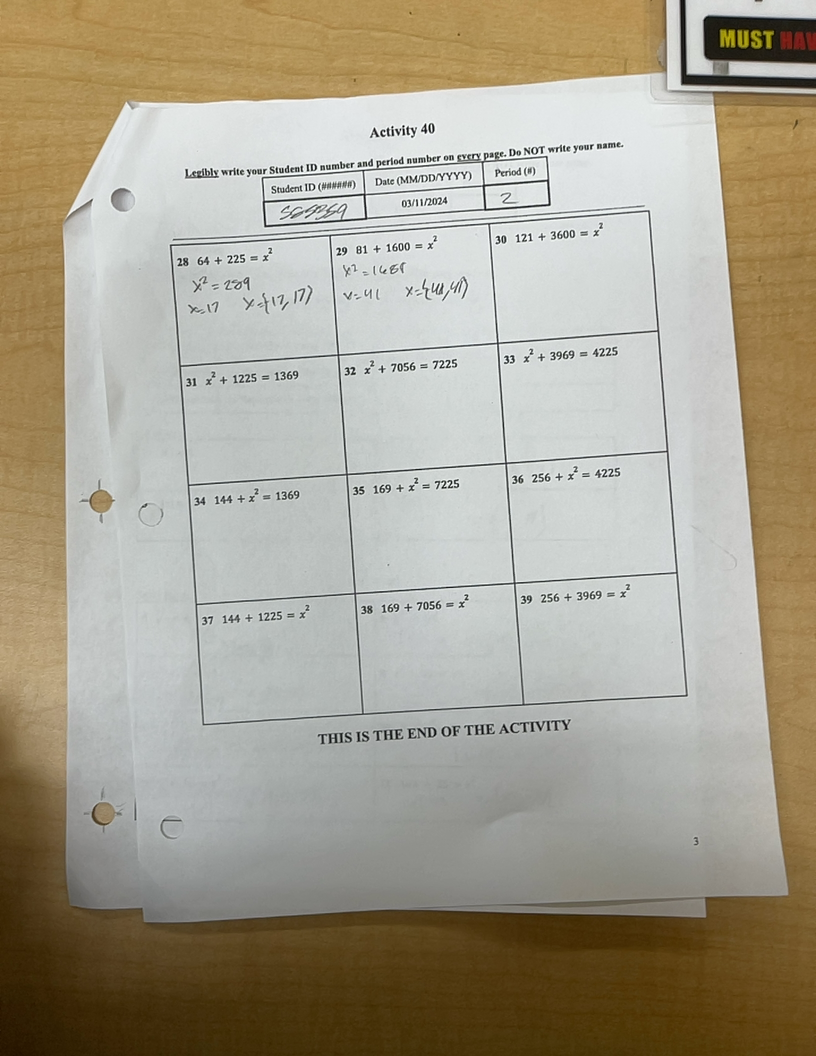 MUST HAV
Activity 40
Legibly write your Student ID number and period number on every page. Do NOT write your name.
Student ID (######) Date (MM/DD/YYYY) Period (#)
03/11/2024 2
28 64 + 225 = x²
x² = 289
x=17 x={17,17}
29 81 + 1600 = x²
x² = 1681
x=41 x={41,41}
30 121 + 3600 = x²
31 x² + 1225 = 1369
32 x² + 7056 = 7225
33 x² + 3969 = 4225
34 144 + x² = 1369
35 169 + x² = 7225
36 256 + x² = 4225
37 144 + 1225 = x²
38 169 + 7056 = x²
39 256 + 3969 = x²
THIS IS THE END OF THE ACTIVITY
3